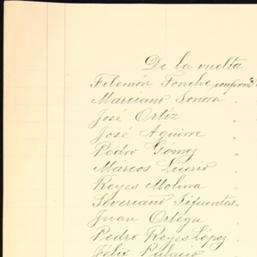 De la vuelta
Filomón Fonche
Marciano Sonora
José Ortiz
José Aguirre
Pedro Gómez
Márcos Lucrio
Reyes Molina
Severiano Sifuentes
Juan Ortega
Pedro Reyes López
Félix Palacio